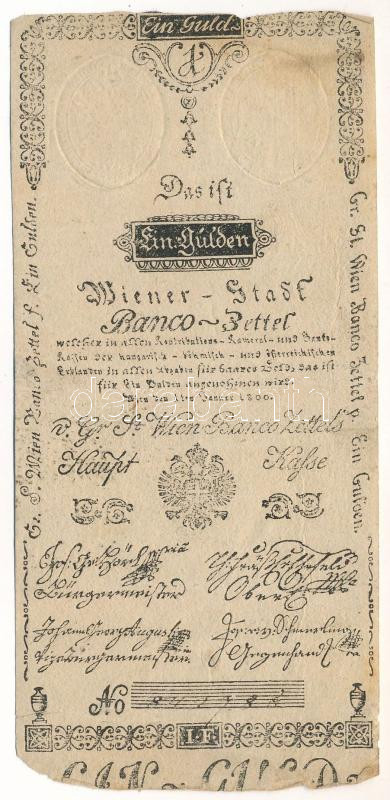 Ein Guld.
1
Das ist
Ein Gulden
Wiener - Stadt
Banco ~ Zettel
welcher in allen Kontributions - Kameral - und Banko -
Kassen der hungarisch - böhmisch - und österreichischen
Erblanden in allen Abgaben für baares Geld, das ist
für Ein Gulden angenohmen wird.
Wien den 1ten Jänner 1800.
v. Gr. St. Wien Banco Zettels
Haupt Kasse
Bürgermeister
Ober
Johann Georg Augusti
Vizebürgermeister
Gegenhandl
No
I.F.
Gr. S. Wien Banco Zettel p. Ein Gulden.
Gr. St. Wien Banco Zettel p. Ein Gulden.